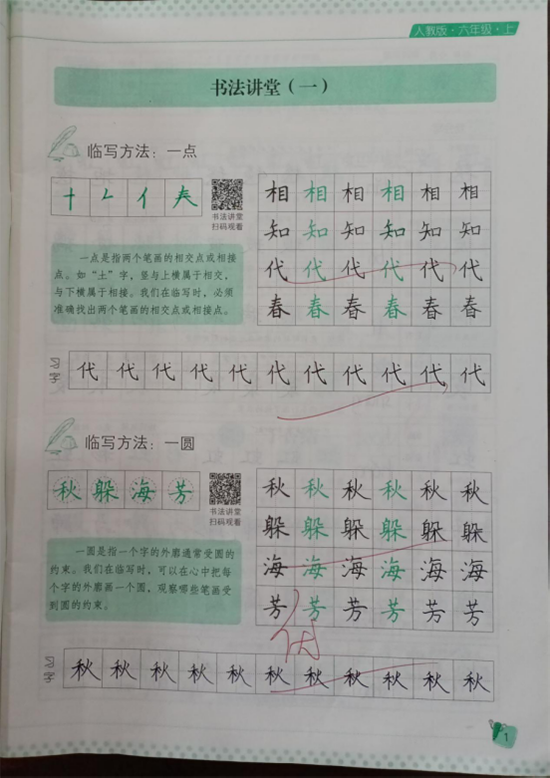 人教版·六年级·上
书法讲堂（一）
临写方法：一点
书法讲堂
扫码观看
一点是指两个笔画的相交点或相接
点。如“土”字，竖与上横属于相交，
与下横属于相接。我们在临写时，必须
准确找出两个笔画的相交点或相接点。
相 相 相 相 相 相
知 知 知 知 知 知
代 代 代 代 代 代
春 春 春 春 春 春
习字
代 代 代 代 代 代 代 代 代 代 代
临写方法：一圆
秋 躲 海 芳
书法讲堂
扫码观看
一圆是指一个字的外廓通常受圆的
约束。我们在临写时，可以在心中把每
个字的外廓画一个圆，观察哪些笔画受
到圆的约束。
秋 秋 秋 秋 秋 秋
躲 躲 躲 躲 躲 躲
海 海 海 海 海 海
芳 芳 芳 芳 芳 芳
习字
秋 秋 秋 秋 秋 秋 秋 秋 秋 秋 秋
1